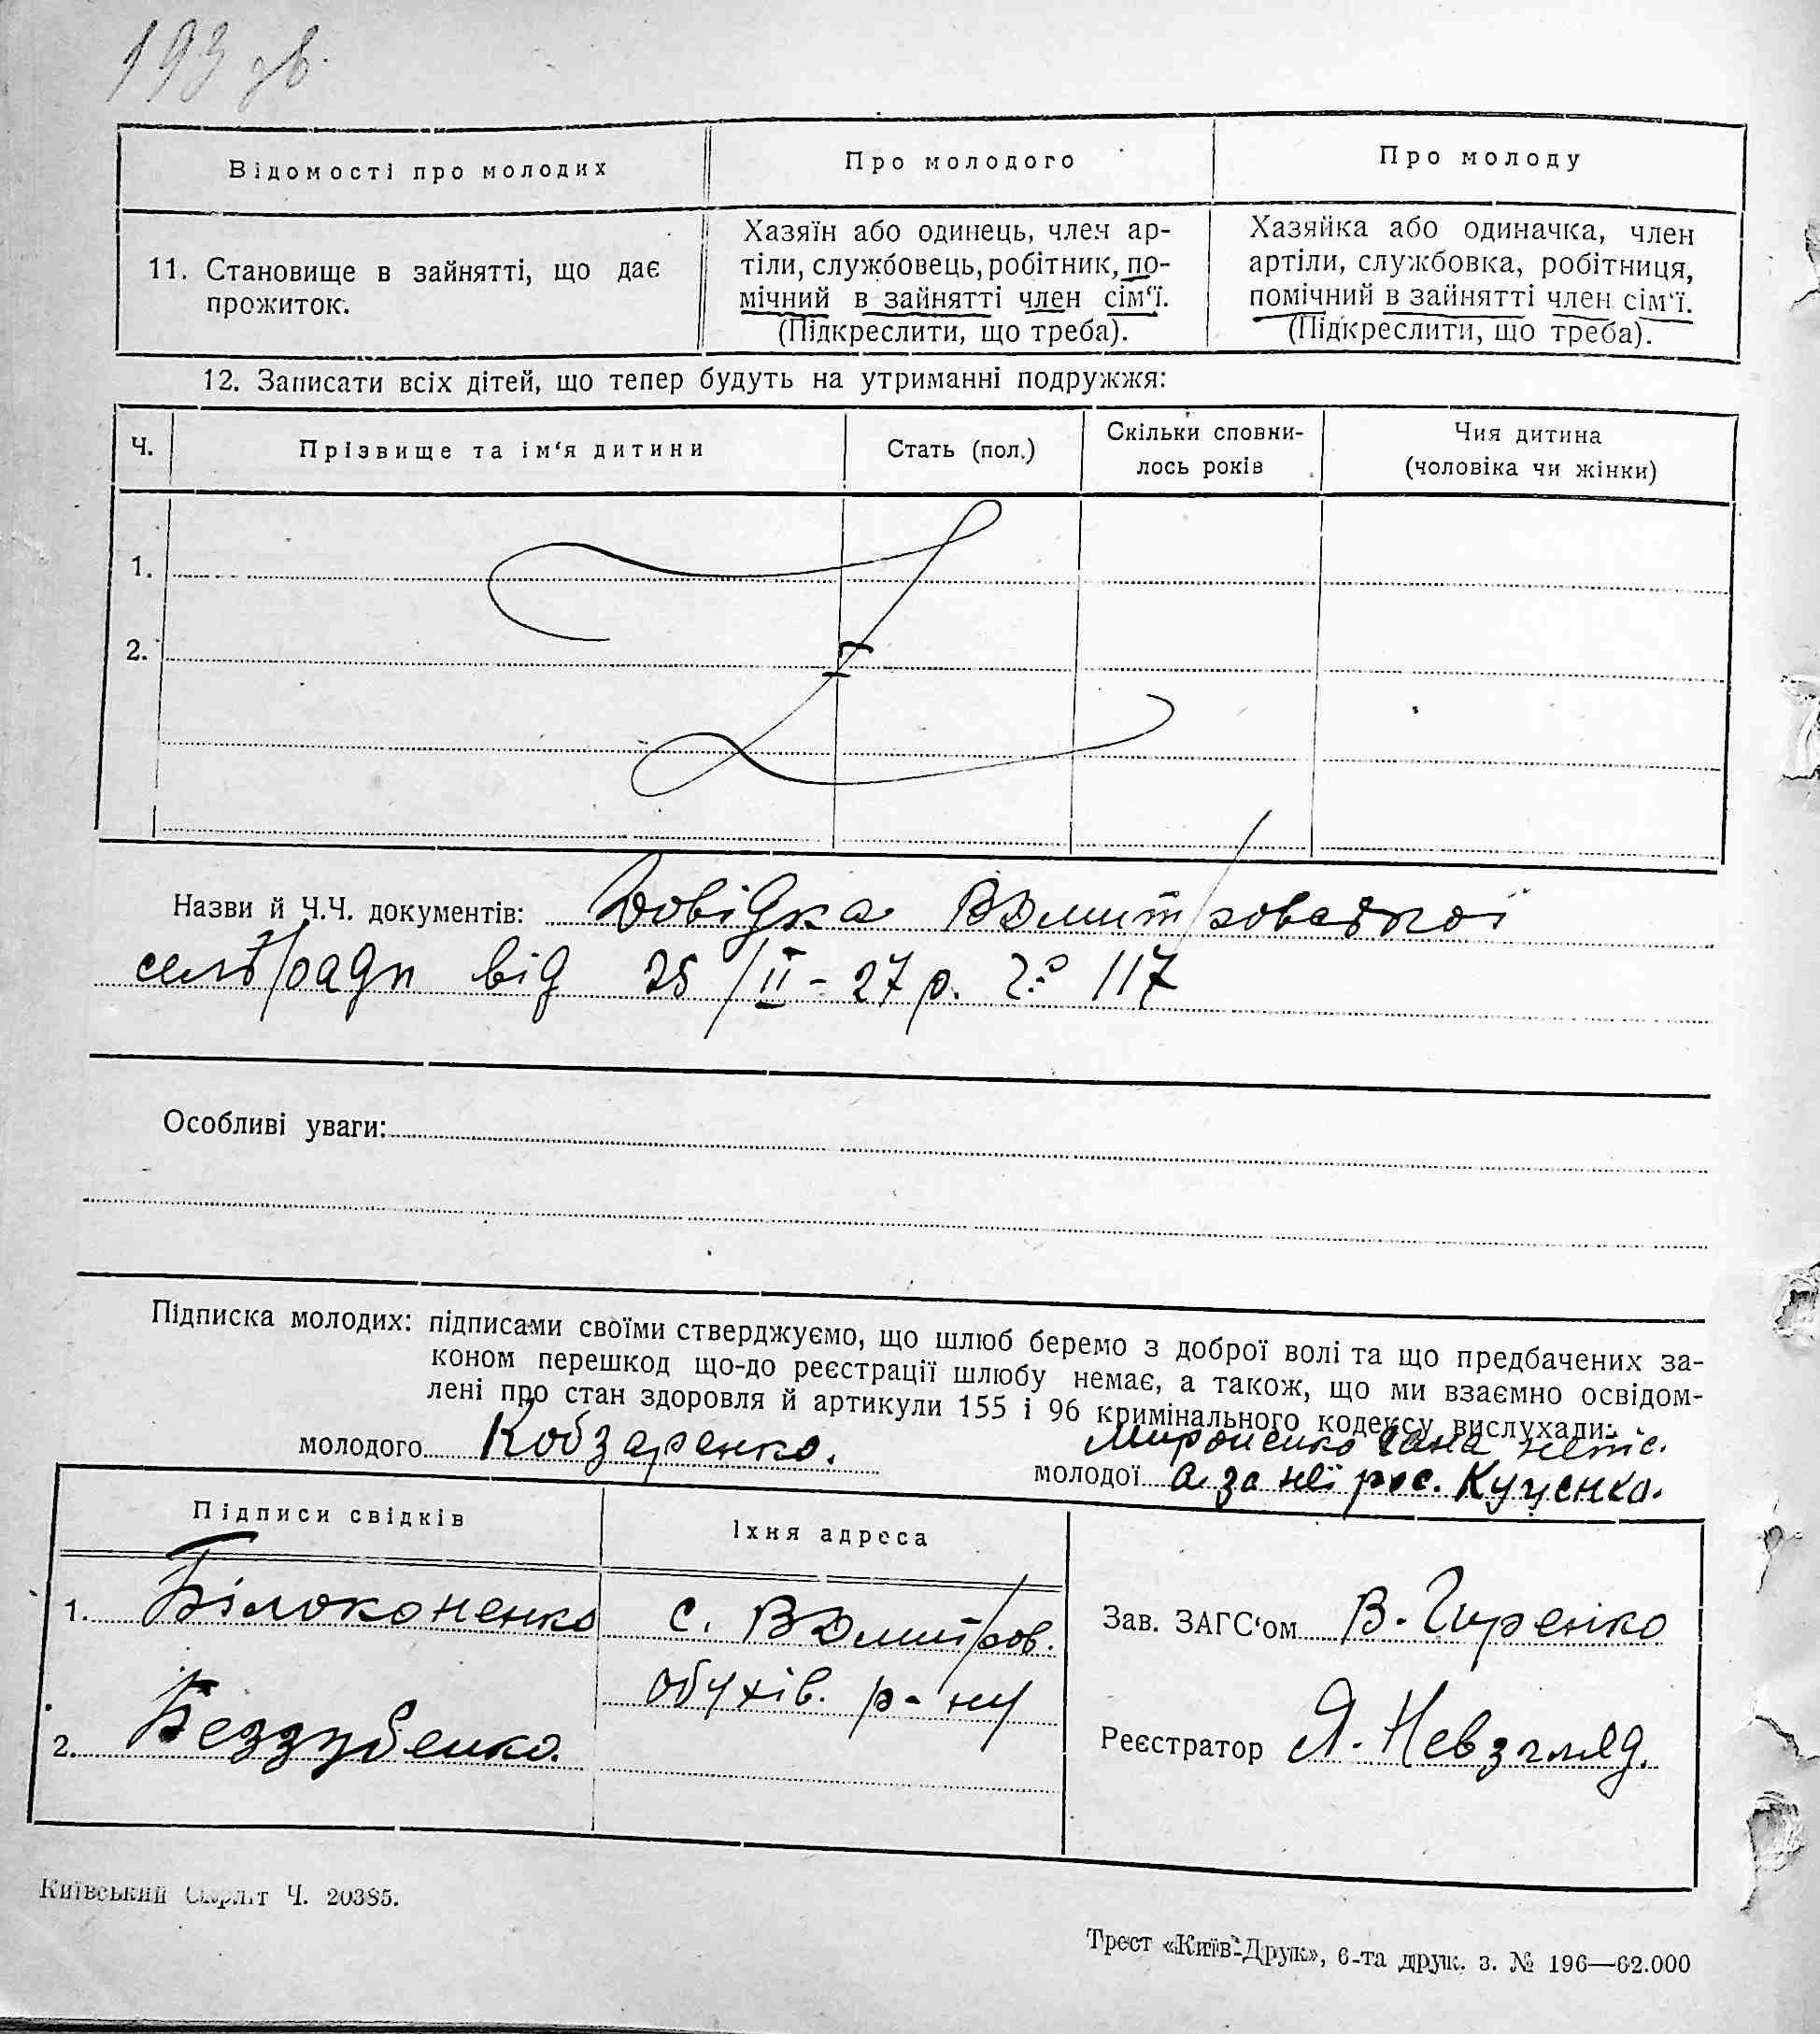 193 зв.
Відомості про молодих
Про молодого
Про молоду
11. Становище в зайнятті, що дає
прожиток.
Хазяїн або одинець, член ар-
тіли, службовець, робітник, по-
мічний в зайнятті член сім'ї.
(Підкреслити, що треба).
Хазяйка або одиначка, член
артіли, службовка, робітниця,
помічний в зайнятті член сім'ї.
(Підкреслити, що треба).
12. Записати всіх дітей, що тепер будуть на утриманні подружжя:
Ч.
Прізвище та ім'я дитини
Стать (пол.)
Скільки сповни-
лось років
Чия дитина
(чоловіка чи жінки)
1.
2.
Назви й Ч.Ч. документів: Довідка ВДмитровської
сельради від 25/II-27 р. 117
Особливі уваги:
Підписка молодих: підписами своїми стверджуємо, що шлюб беремо з доброї волі та що предбачених за-
коном перешкод що-до реєстрації шлюбу немає, а також, що ми взаємно освідом-
лені про стан здоровля й артикули 155 і 96 кримінального кодексу вислухали:
молодого Кобзаренко.
Мироненко Гана непис.
молодої а за неї рос. Куценко.
Підписи свідків
Їхня адреса
1. Білоконенко
с. ВДмитров.
Обухів. р-ну
2. Беззубенко.
Зав. ЗАГС'ом В. Гиренко
Реєстратор Я. Невзгляд.
Київський Окрліт Ч. 20385.
Трест «Київ-Друк», 6-та друк. з. № 196—62.000